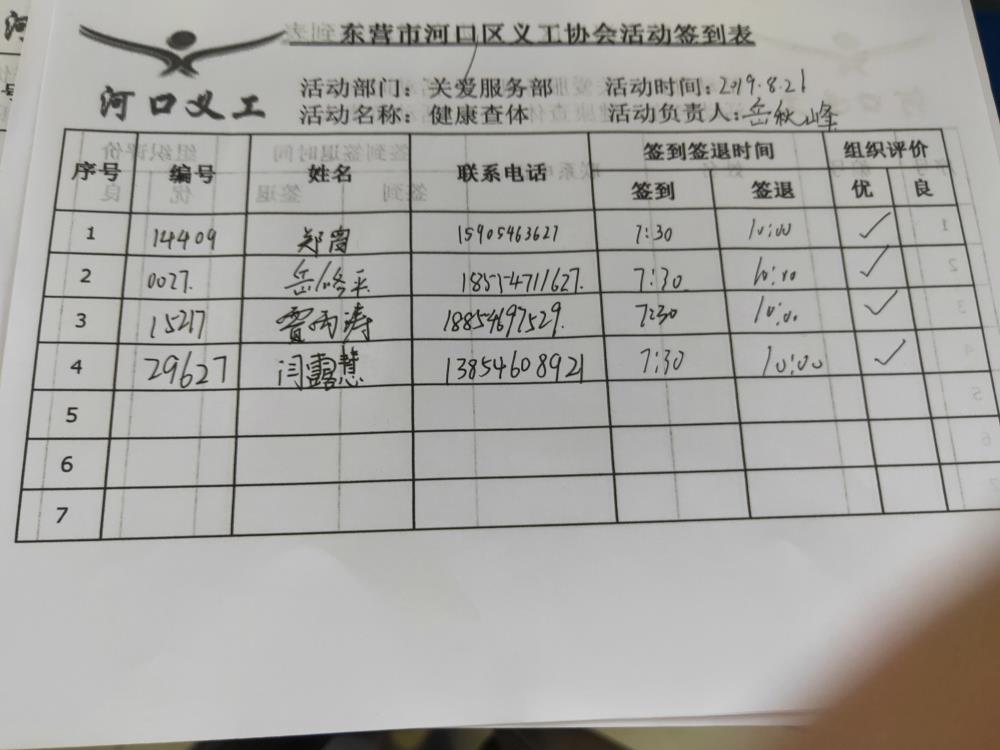 东营市河口区义工协会活动签到表
河口义工
活动部门：关爱服务部 活动时间：2019.8.21
活动名称：健康查体 活动负责人：岳秋峰
序号 编号 姓名 联系电话 签到签退时间 组织评价
签到 签退 优 良
1 14409 郑 15905463627 7:30 10:00 ✓
2 0027. 岳修平 18554711627. 7:30 10:00 ✓
3 15217 贾丙涛 18854697529. 7:30 10:00 ✓
4 29627 闫露慧 13854608921 7:30 10:00 ✓
5
6
7